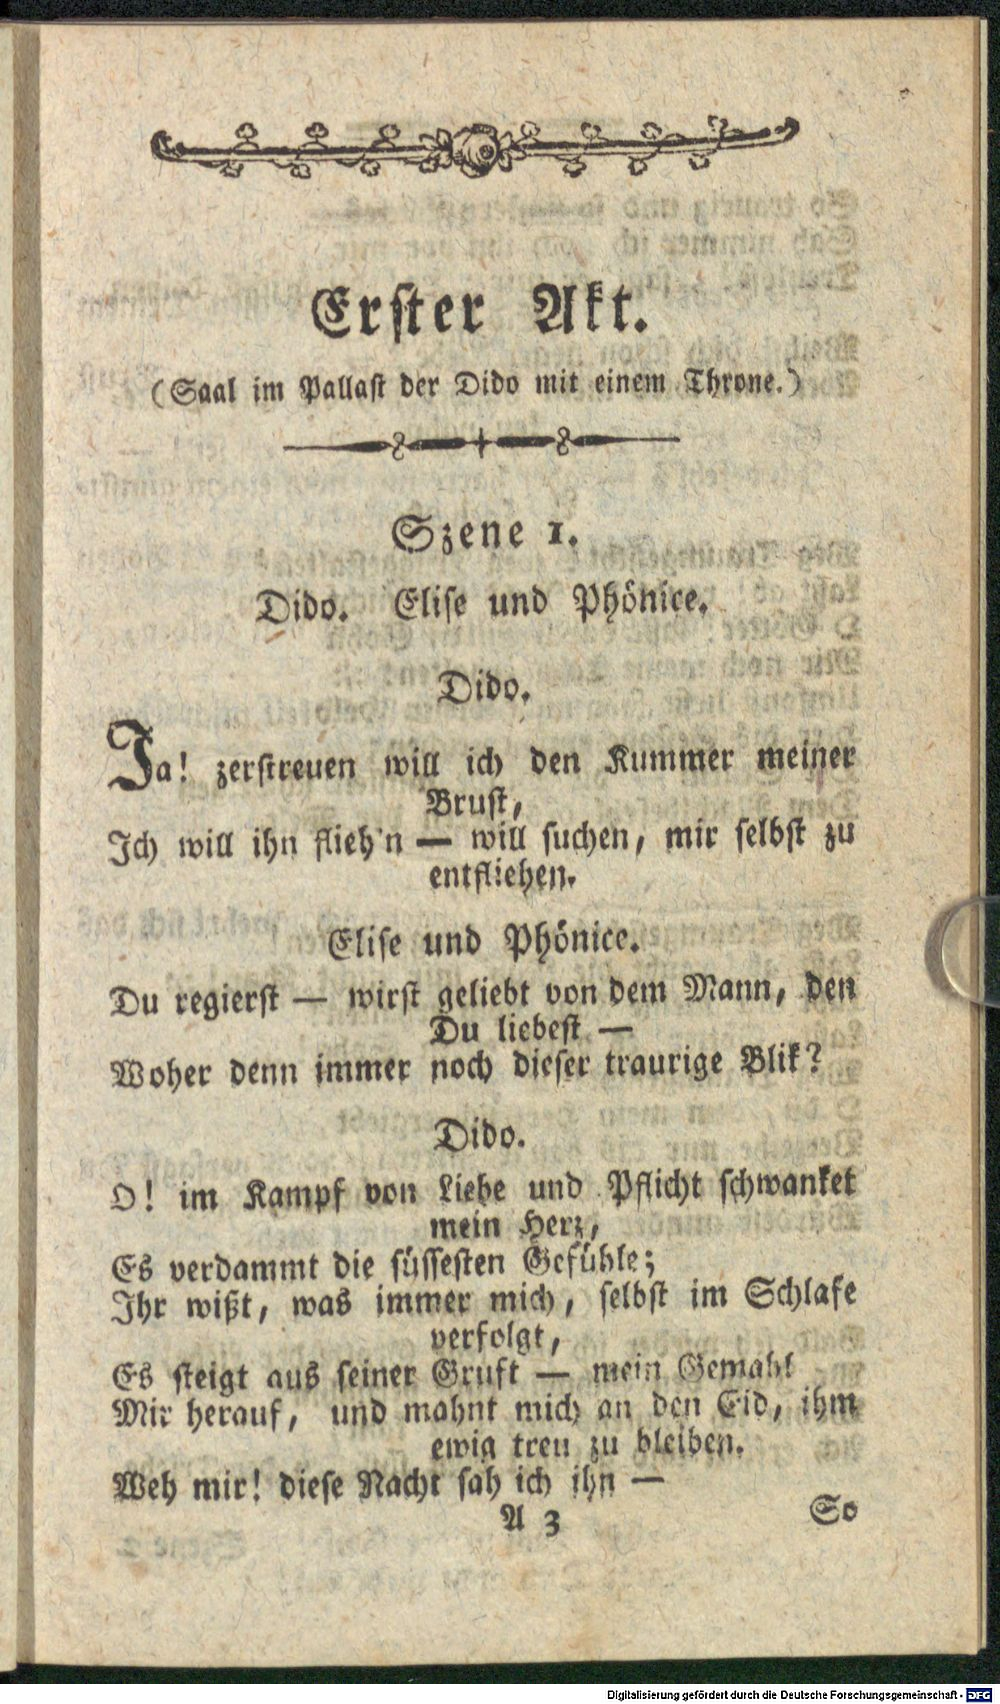 Erster Akt.
(Saal im Pallast der Dido mit einem Throne.)
Szene 1.
Dido. Elise und Phönice.
Dido.
Ja! zerstreuen will ich den Kummer meiner
Brust,
Ich will ihn flieh'n — will suchen, mir selbst zu
entfliehen.
Elise und Phönice.
Du regierst — wirst geliebt von dem Mann, den
Du liebest —
Woher denn immer noch dieser traurige Blik?
Dido.
O! im Kampf von Liebe und Pflicht schwanket
mein Herz,
Es verdammt die süssesten Gefühle;
Ihr wißt, was immer mich, selbst im Schlafe
verfolgt,
Es steigt aus seiner Gruft — mein Gemahl
Mir herauf, und mahnt mich an den Eid, ihm
ewig treu zu bleiben.
Weh mir! diese Nacht sah ich ihn —
A 3 So
Digitalisierung gefördert durch die Deutsche Forschungsgemeinschaft - DFG